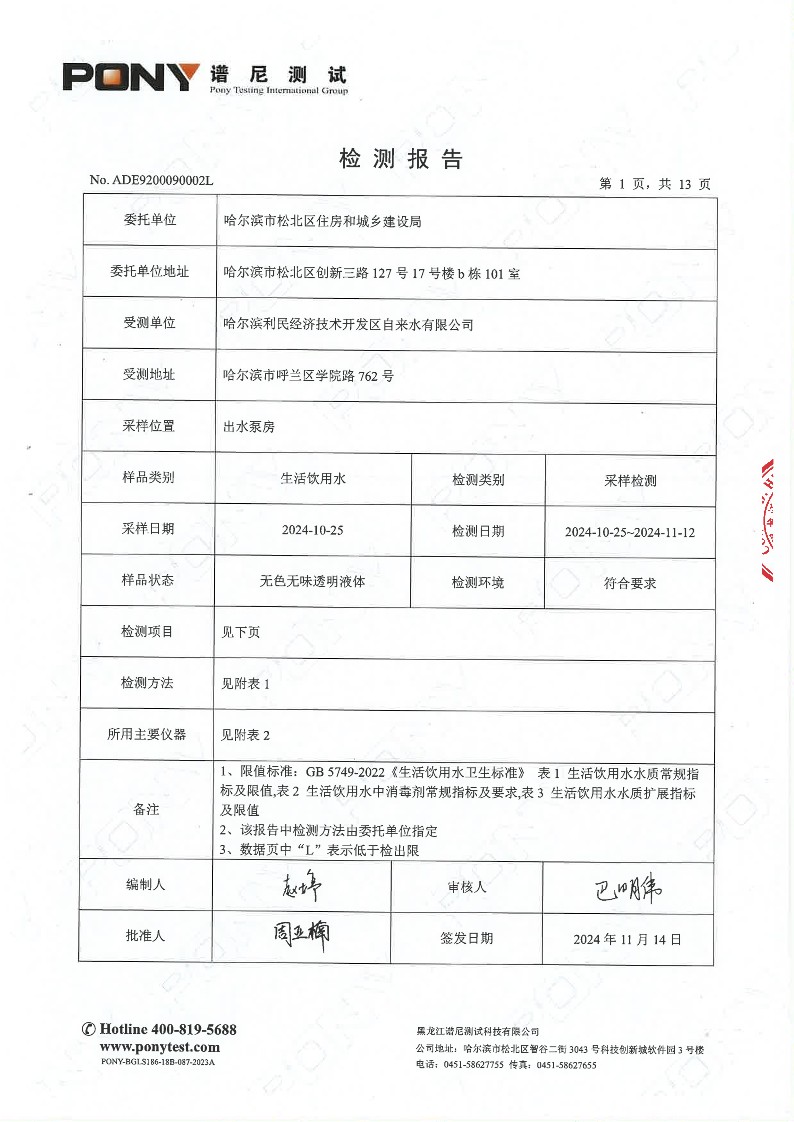 PONY 谱尼测试
Pony Testing International Group
检测报告
No. ADE9200090002L
第 1 页，共 13 页
委托单位 哈尔滨市松北区住房和城乡建设局
委托单位地址 哈尔滨市松北区创新三路 127 号 17 号楼 b 栋 101 室
受测单位 哈尔滨利民经济技术开发区自来水有限公司
受测地址 哈尔滨市呼兰区学院路 762 号
采样位置 出水泵房
样品类别 生活饮用水 检测类别 采样检测
采样日期 2024-10-25 检测日期 2024-10-25~2024-11-12
样品状态 无色无味透明液体 检测环境 符合要求
检测项目 见下页
检测方法 见附表 1
所用主要仪器 见附表 2
备注
1、限值标准：GB 5749-2022《生活饮用水卫生标准》 表 1 生活饮用水水质常规指
标及限值,表 2 生活饮用水中消毒剂常规指标及要求,表 3 生活饮用水水质扩展指标
及限值
2、该报告中检测方法由委托单位指定
3、数据页中“L”表示低于检出限
编制人 审核人 巴明伟
批准人 周亚楠 签发日期 2024 年 11 月 14 日
Hotline 400-819-5688
www.ponytest.com
PONY-BGLS186-18B-087-2023A
黑龙江谱尼测试科技有限公司
公司地址：哈尔滨市松北区智谷二街 3043 号科技创新城软件园 3 号楼
电话：0451-58627755 传真：0451-58627655